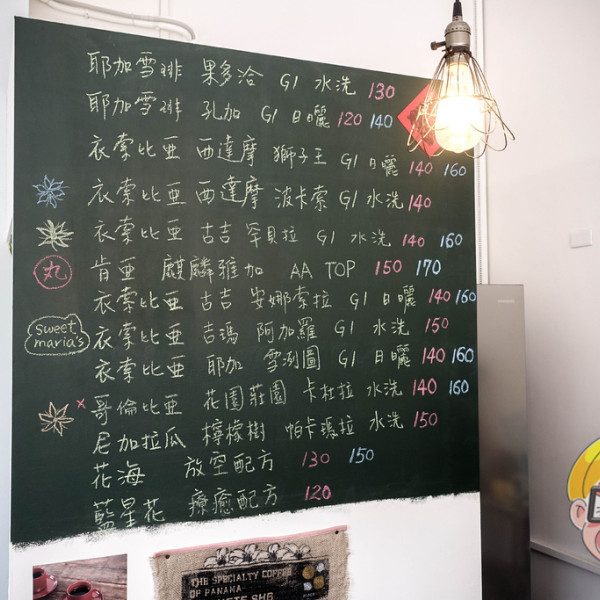 耶加雪啡 果多洽 G1 水洗 130
耶加雪啡 孔加 G1 日曬 120 140
衣索比亞 西達摩 獅子王 G1 日曬 140 160
衣索比亞 西達摩 波卡索 G1 水洗 140
衣索比亞 古吉 罕貝拉 G1 水洗 140 160
丸
肯亞 麒麟雅加 AA TOP 150 170
衣索比亞 古吉 安娜索拉 G1 日曬 140 160
sweet
maria's
衣索比亞 吉瑪 阿加羅 G1 水洗 150
衣索比亞 耶加 雪洌圖 G1 日曬 140 160
x
哥倫比亞 花園莊園 卡杜拉 水洗 140 160
尼加拉瓜 檸檬樹 帕卡瑪拉 水洗 150
花海 放空配方 130 150
藍星花 療癒配方 120
THE SPECIALTY COFFEE
OF PANAMA
SHB